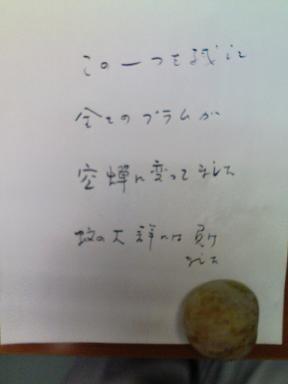 この一つを残して
全てのプラムが
空蝉に変ってました
蚊の大群には負け
ました